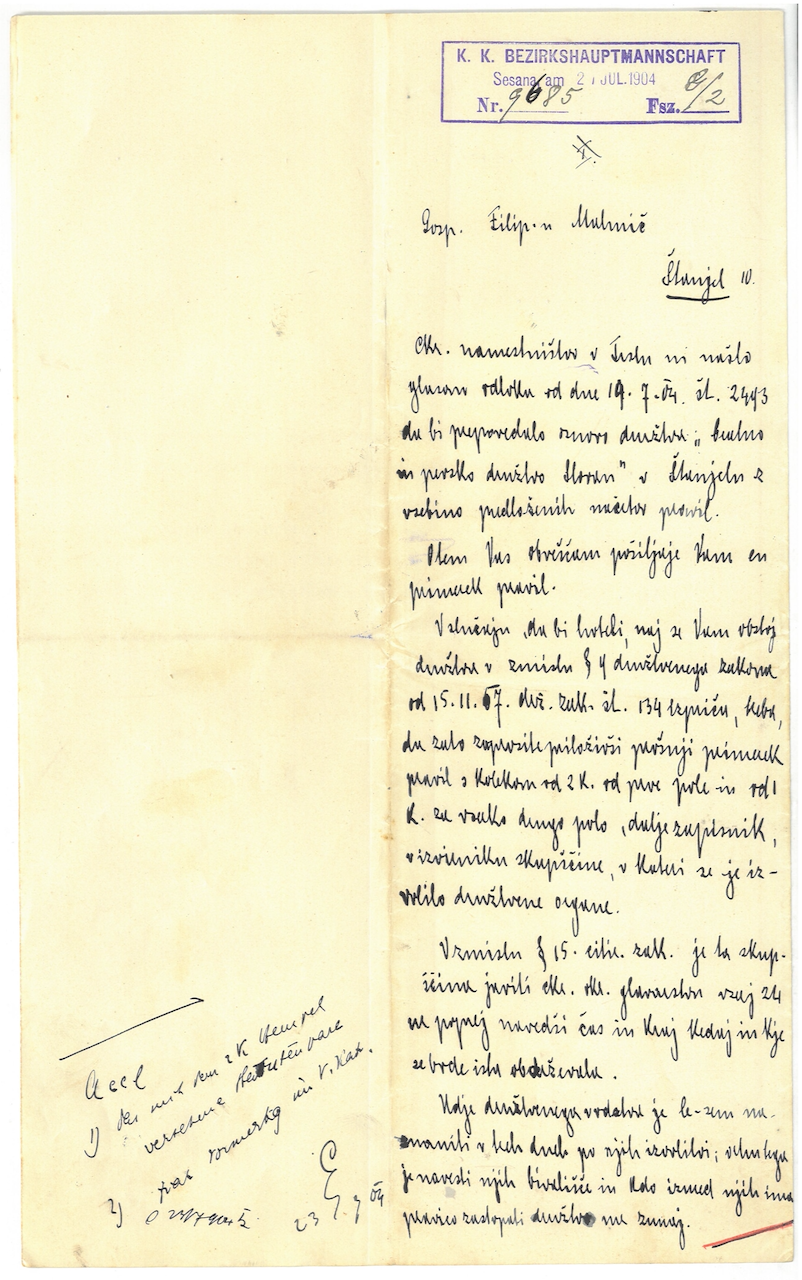 K. K. BEZIRKSHAUPTMANNSCHAFT
Sesana, am 2 JUL. 1904
Nr. 9685 Fsz. 8/2
Gosp. Filip
Štanjel 10.
Ckr. namestništvo v Trstu ni našlo
glasom odloka od dne 19. 7. 04. št.
da bi prepovedalo snovo družtva „bralno
in pevsko družtvo Slovan" v Štanjelu z
vsebino predloženih načrtov pravil.
O tem Vas obveščam pošiljaje Vam en
primerk pravil.
V slučaju, da bi hoteli, naj se Vam obstoj
družtva v zmislu § 9 družtvenega zakona
od 15. 11. 67. drž. zak. št. 134 izpriča, treba,
da zato zaprosite priloživši prošnji primerk
pravil s kolekom od 2 K. od prve pole in od 1
K. za vsako drugo polo, dalje zapisnik,
v izvirniku skupščine, v kateri se je iz-
volilo družtvene organe.
V zmislu § 15. citir. zak. je ta skup-
ščina javiti ckr. okr. glavarstvu vsaj 24
ur poprej navedši čas in kraj kedaj in kje
se brde ista obdrževala.
Udje družtvenega vodstva je le-sem na-
znaniti v treh dneh po njih izvolitvi; v tem
je navesti njih bivališče in kdo izmed njih ima
pravico zastopati družtvo na zunaj.
1) mit dem 2 K Stempel
versehene
Vormerkg im V. Kat.
2)
23/7 04